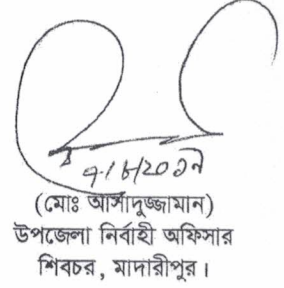 (মোঃ আসাদুজ্জামান)
উপজেলা নির্বাহী অফিসার
শিবচর, মাদারীপুর।